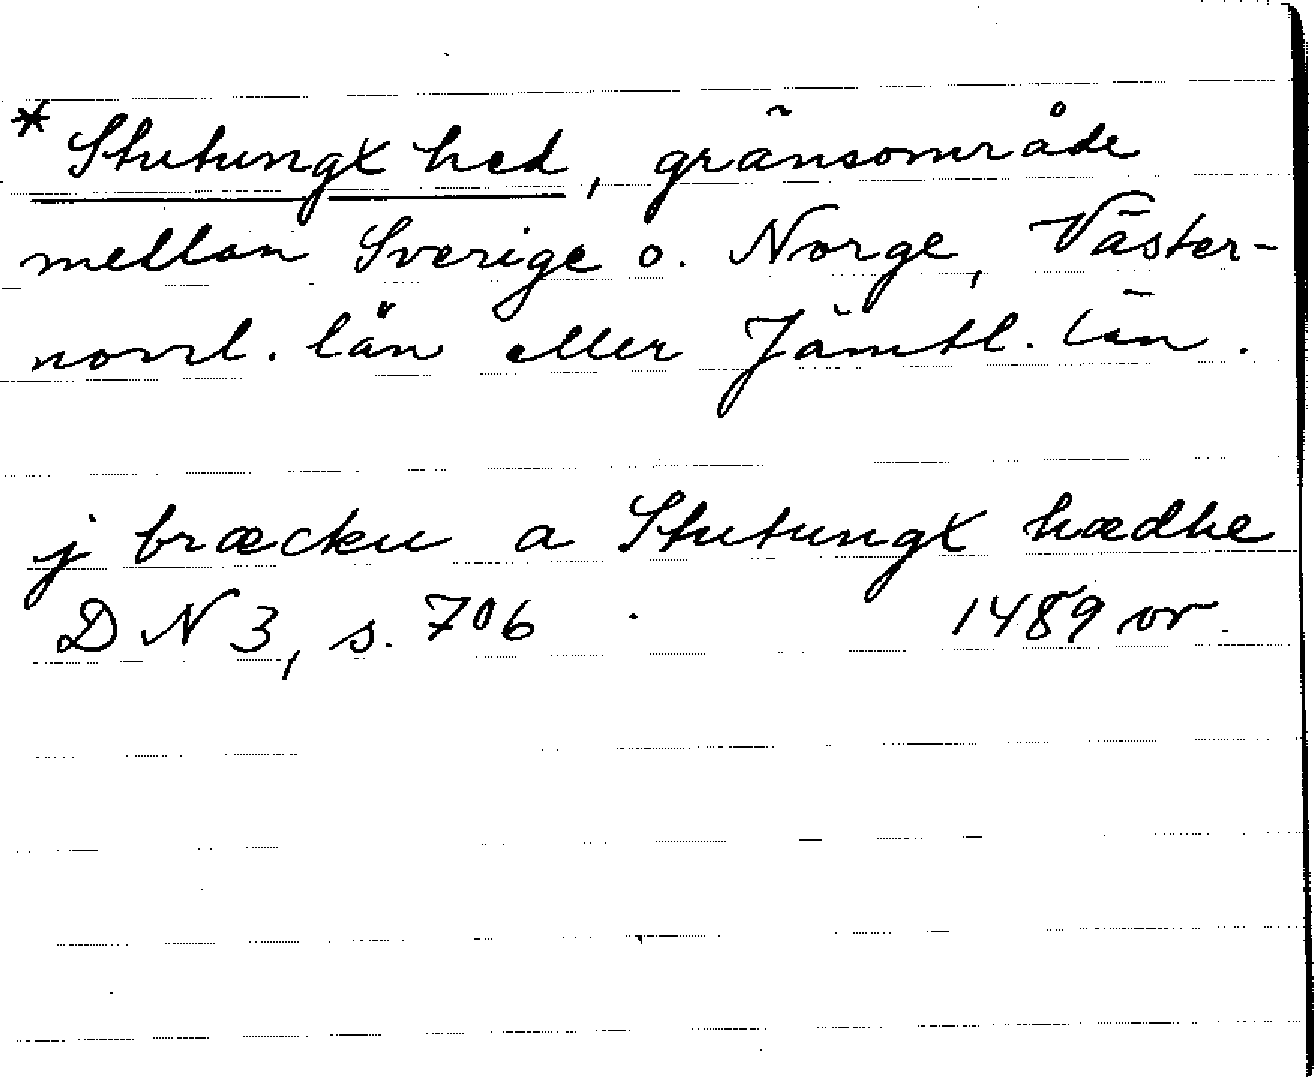 * Stutungx hed, gränsområde
mellan Sverige o. Norge, Väster-
norrl. län eller Jämtl. län.
j bræcku a Stutungx hædhe
DN 3, s. 706 . 1489 or.